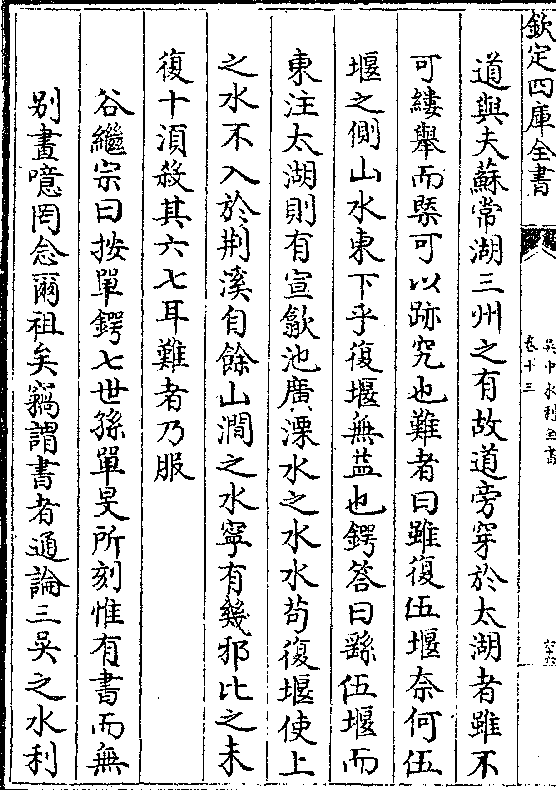 欽定四庫全書
吳中水利全書
卷十三
道與夫蘇常湖三州之有故道旁穿於太湖者雖不
可縷舉而槩可以跡究也難者曰雖復伍堰奈何伍
堰之側山水東下乎復堰無益也鍔答曰繇伍堰而
東注太湖則有宣歙池廣溧水之水水苟復堰使上
之水不入於荆溪自餘山澗之水寧有幾邪比之未
復十湏殺其六七耳難者乃服
谷繼宗曰按單鍔七世孫單旻所刻惟有書而無
别畫噫罔念爾祖矣竊謂書者通論三吳之水利